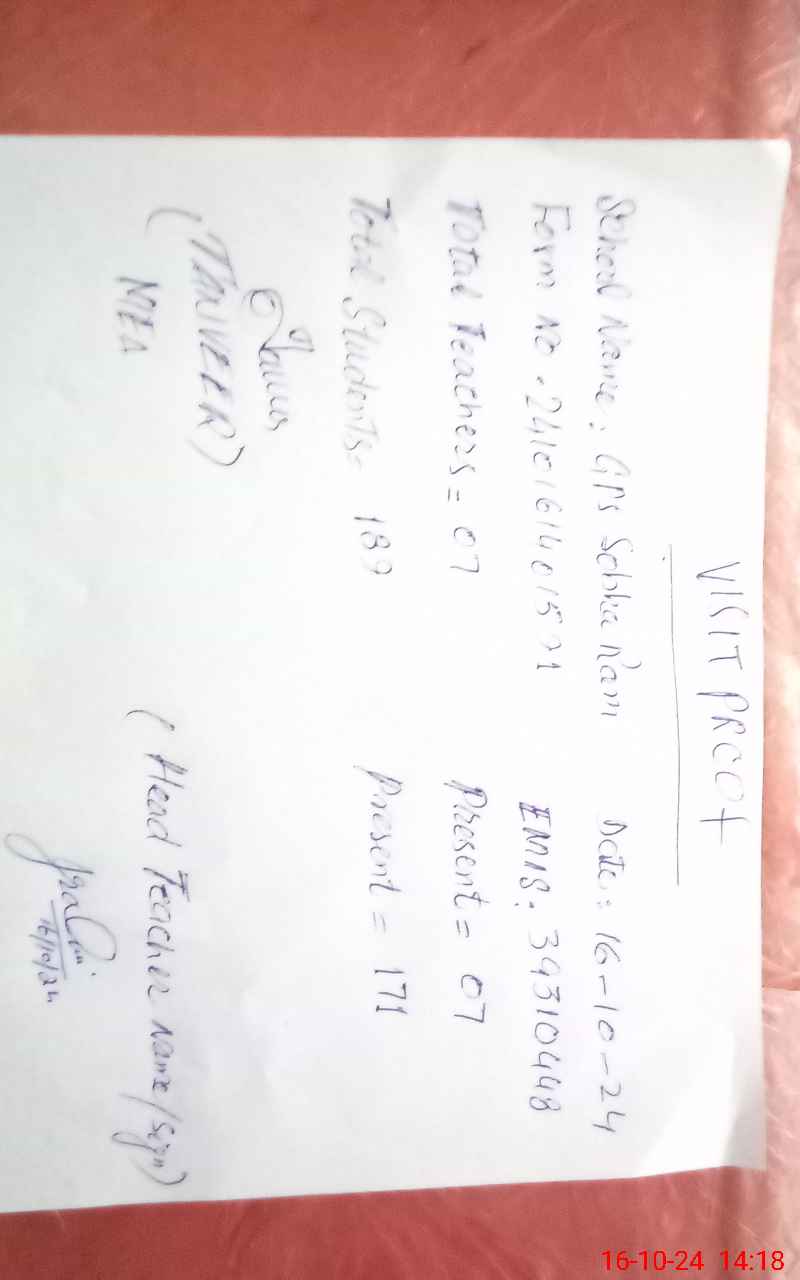 VISIT PROOF
School Name: GPS Sobha Ram Date: 16-10-24
Form No. 24101614015 EMIS: 39310448
Total Teachers = 07 Present = 07
Total Students = 189 Present = 171
(TANVEER) (Head Teacher Name/Sign)
MEA
16/10/24
16-10-24 14:18